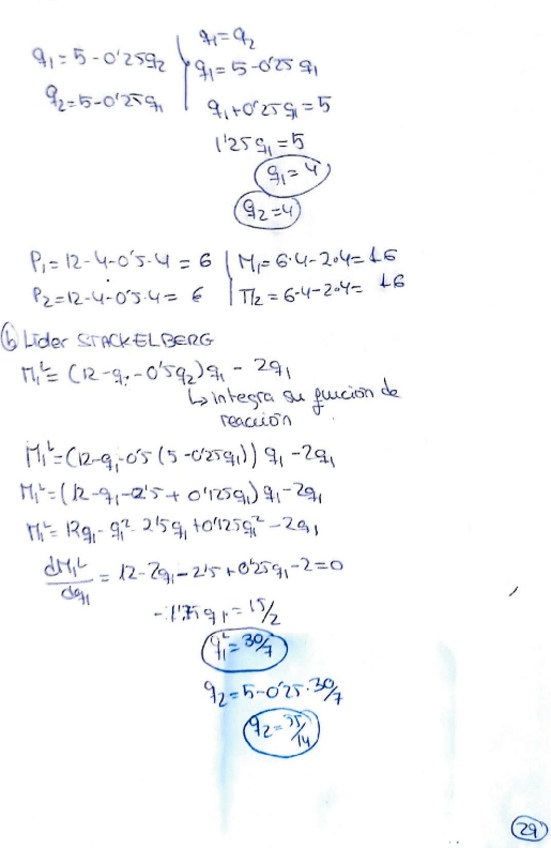 q₁ = 5 - 0'25q₂
q₂ = 5 - 0'25q₁
q₁ = q₂
q₁ = 5 - 0'25 q₁
q₁ + 0'25 q₁ = 5
1'25 q₁ = 5
q₁ = 4
q₂ = 4
P₁ = 12 - 4 - 0'5·4 = 6 | Π₁ = 6·4 - 2·4 = 16
P₂ = 12 - 4 - 0'5·4 = 6 | Π₂ = 6·4 - 2·4 = 16
b) Líder STACKELBERG
Π₁ᴸ = (12 - q₁ - 0'5q₂) q₁ - 2q₁
↳ integra su función de
reacción
Π₁ᴸ = (12 - q₁ - 0'5 (5 - 0'25q₁)) q₁ - 2q₁
Π₁ᴸ = (12 - q₁ - 2'5 + 0'125q₁) q₁ - 2q₁
Π₁ᴸ = 12q₁ - q₁² - 2'5q₁ + 0'125q₁² - 2q₁
dΠ₁ᴸ/dq₁ = 12 - 2q₁ - 2'5 + 0'25q₁ - 2 = 0
-1'75 q₁ = 15/2
q₁ᴸ = 30/7
q₂ = 5 - 0'25·30/7
q₂ = 55/14
29